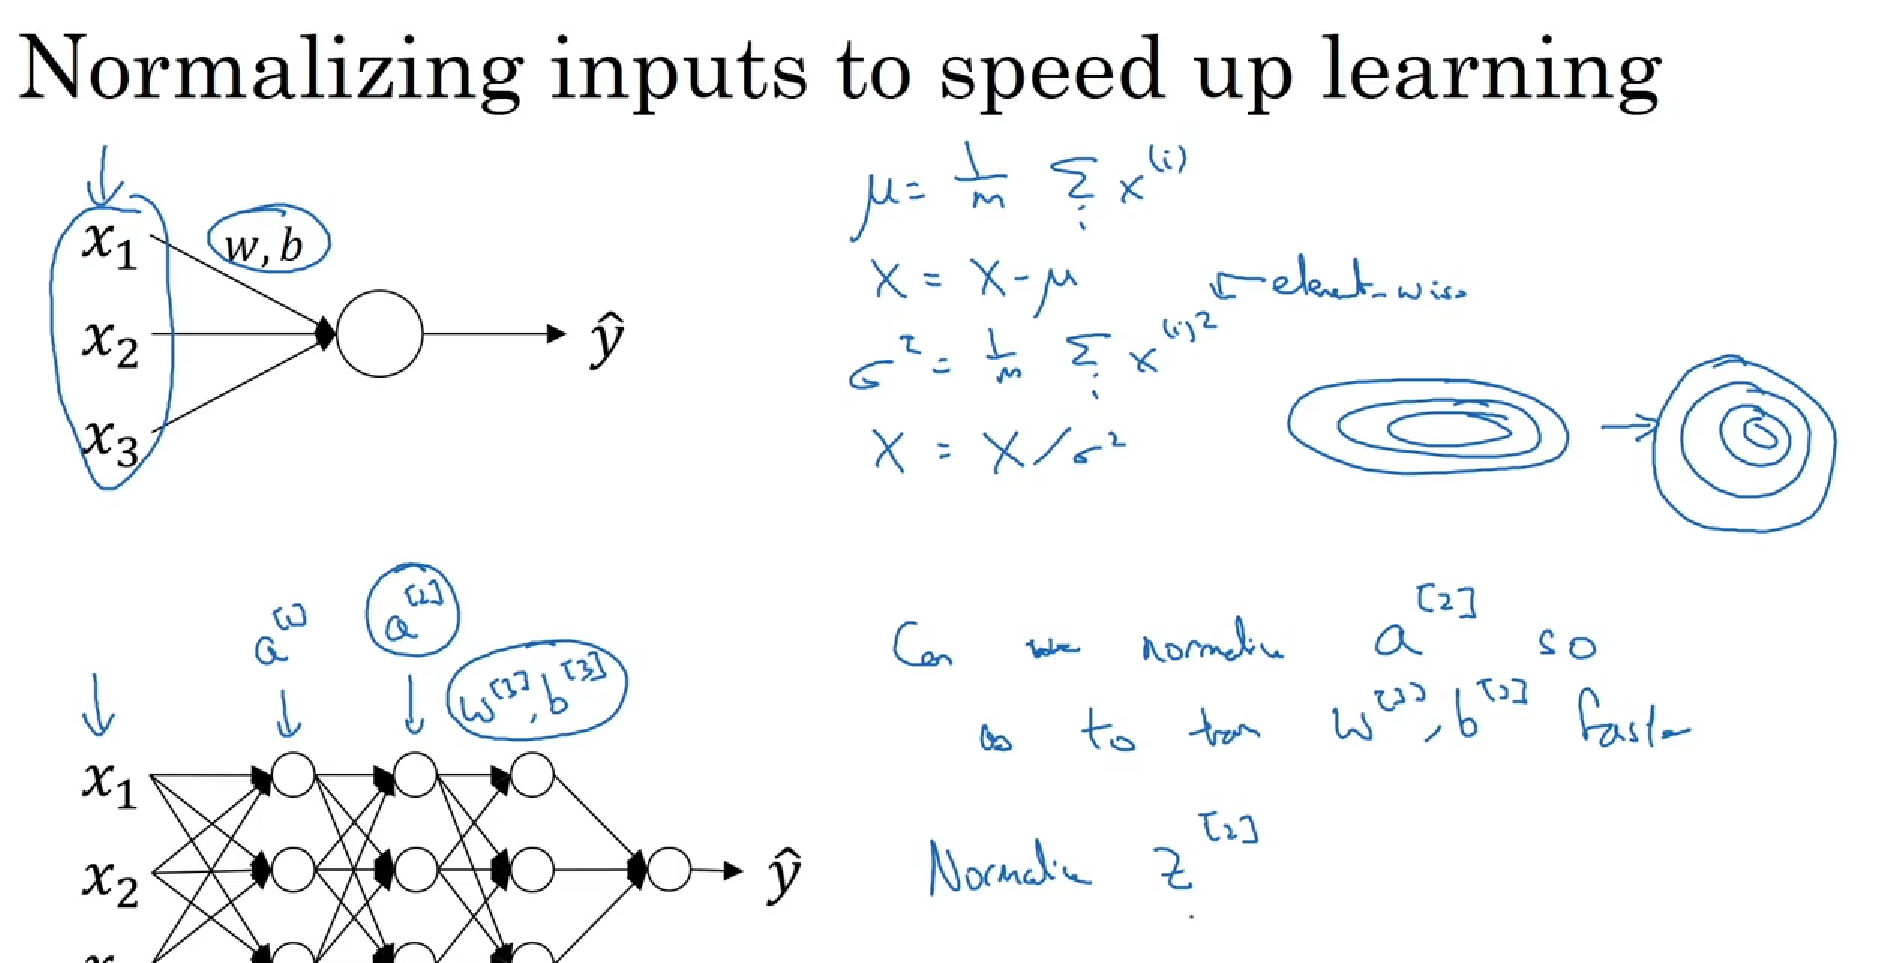 Normalizing inputs to speed up learning
x₁
w, b
x₂
x₃
ŷ
μ = 1/m Σᵢ x⁽ⁱ⁾
X = X - μ
σ² = 1/m Σᵢ x⁽ⁱ⁾² ← element-wise
X = X / σ²
a^[1] a^[2]
w^[3], b^[3]
x₁
x₂
ŷ
Can we normalize a^[2] so
as to train w^[3], b^[3] faster
Normalize z^[2]